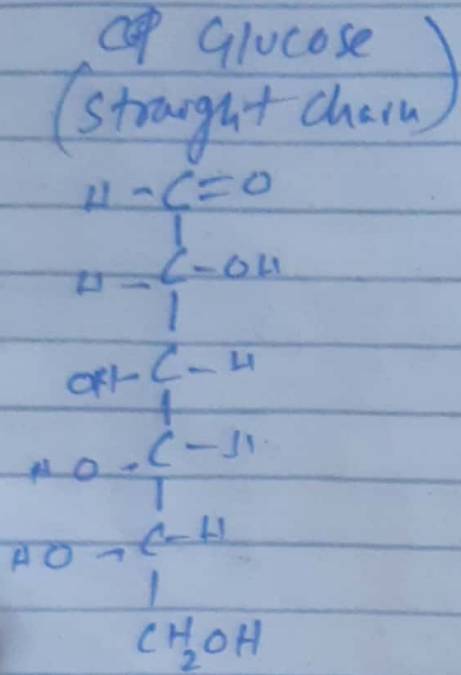 Glucose
(straight chain)
H-C=O
H-C-OH
OH-C-H
HO-C-H
HO-C-H
CH₂OH